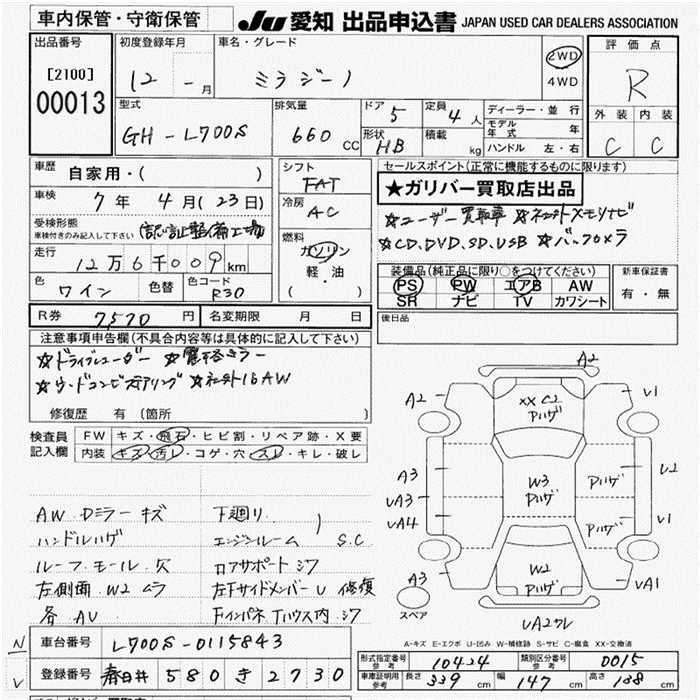 車内保管・守衛保管 JU 愛知 出品申込書 JAPAN USED CAR DEALERS ASSOCIATION
出品番号 [2100] 00013
初度登録年月 12 - 月
車名・グレード ミラジーノ 2WD 4WD
評価点 R
外装 C 内装 C
型式 GH-L700S
排気量 660 CC
ドア 5 定員 4人
形状 HB 積載 kg
ディーラー・並行
モデル年式 年
ハンドル 左・右
車歴 自家用・( )
車検 7年 4月 (23日)
受検形態 車検付きのみ記入して下さい (認証整備工場)
走行 12万6千009 km
色 ワイン 色替 色コード R30
シフト FAT
冷房 AC
燃料 ガソリン 軽・油 ( )
セールスポイント(正常に機能するものに限ります)
★ガリバー買取店出品
☆ユーザー買取車 ☆ネットメモリナビ
☆CD.DVD.SD.USB ☆バックカメラ
装備品(純正品に限り○をつけてください)
PS PW エアB AW
SR ナビ TV カワシート
新車保証書 有・無
R券 7570 円 名変期限 月 日
後日品
注意事項申告欄(不具合内容等は具体的に記入して下さい)
☆ドライブレコーダー ☆電格ミラー
☆ウッドコンビステアリング ☆ネット16AW
修復歴 有 (箇所 )
検査員記入欄 FW キズ・飛石・ヒビ割・リペア跡・X要
内装 キズ・汚レ・コゲ・穴・スレ・キレ・破レ
AW Dミラー キズ 下廻リ
ハンドルハゲ エンジンルーム S.C
ルーフモール欠 ロアサポートシワ
左側面 W2 ムラ 左Fサイドメンバー U 修復
各 AU Fインパネ Tハウス内 シワ
A2
A2 XX C2 Pハゲ V1
A3 W3 Pハゲ Pハゲ U2
VA3
VA4 Pハゲ V1
A3 W2 Pハゲ VA1
スペア VA2ワレ
A-キズ E-エクボ U-凹み W-補修跡 S-サビ C-腐食 XX-交換済
N 車台番号 L700S-0115843
V 登録番号 春日井 580 き 2730
形式指定番号 参考 10424 類別区分番号 参考 0015
車庫証明用 参考 長さ 339 cm 幅 147 cm 高さ 138 cm